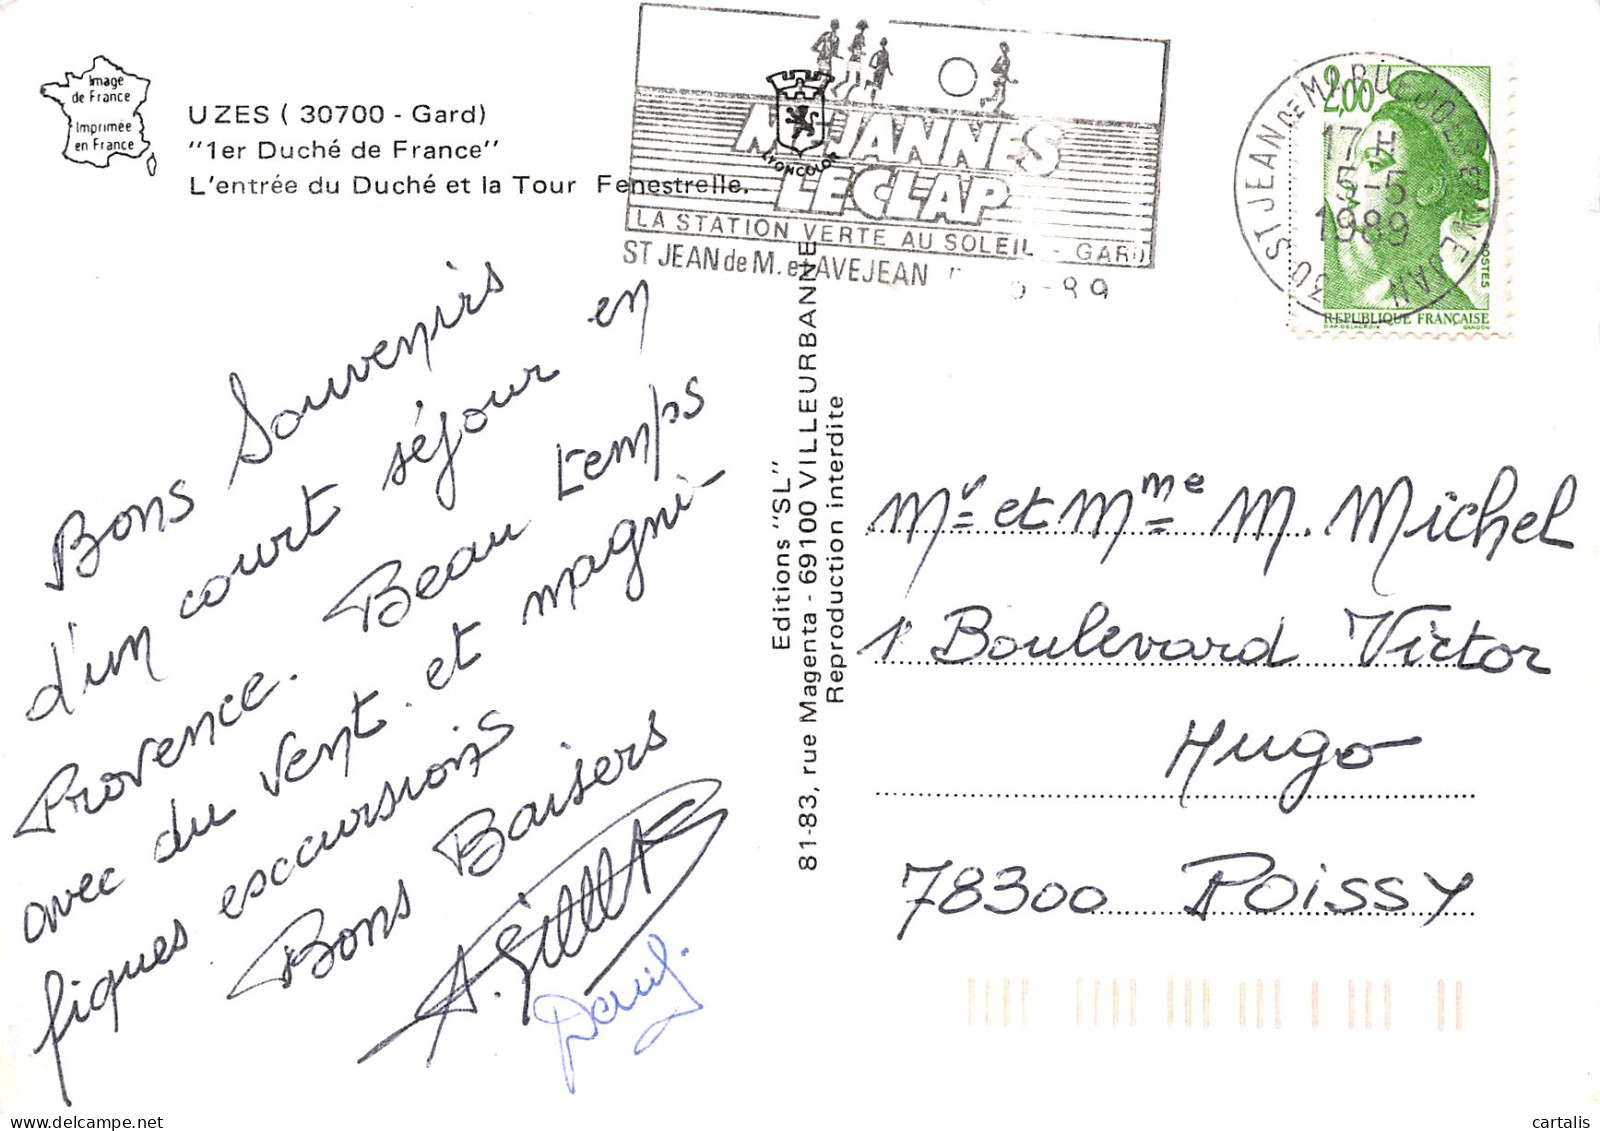 Image
de France
Imprimée
en France
UZES ( 30700 - Gard)
"1er Duché de France"
L'entrée du Duché et la Tour Fenestrelle.
MEJANNES
LE CLAP
LYONCOLOR
LA STATION VERTE AU SOLEIL - GARD
ST JEAN de M. et AVEJEAN
5-89
30 ST JEAN DE MARUEJOLS ET AVEJAN
17 H
5-5
1989
2,00
POSTES
REPUBLIQUE FRANÇAISE
D'AP. DELACROIX GANDON
Bons Souvenirs
d'un court séjour en
Provence. Beau temps
avec du vent. et magni-
fiques excursions
Bons Baisers
Editions "SL"
81-83, rue Magenta - 69100 VILLEURBANNE
Reproduction interdite
Mr et Mme M. Michel
1 Boulevard Victor
Hugo
78300 POISSY
cartalis